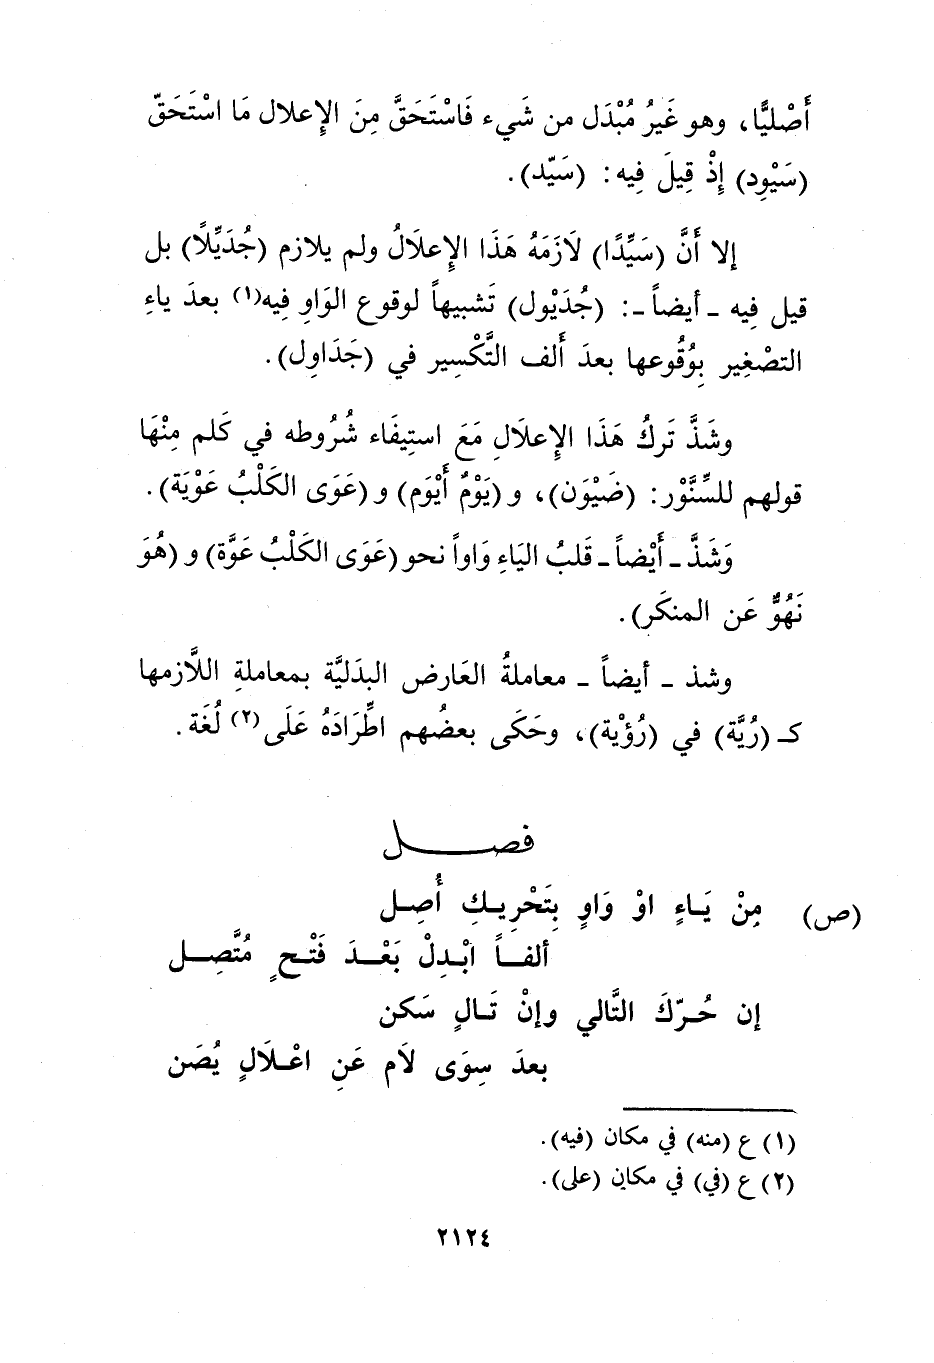 أَصْليًّا، وهو غَيرُ مُبْدَل من شَيء فَاسْتَحَقَّ مِنَ الإِعلال مَا اسْتَحَقّ
(سَيْوِد) إِذْ قِيلَ فِيه: (سَيّد).
إلا أَنَّ (سَيِّدًا) لَازَمَهُ هَذَا الإِعلَالُ ولم يلازم (جُدَيِّلًا) بل
قيل فِيه ـ أيضاً ـ: (جُدَيْول) تَشبيهاً لوقوع الوَاوِ فِيه(١) بعدَ ياءِ
التصْغِير بِوُقُوعها بعدَ أَلف التَّكْسِير في (جَدَاوِل).
وشَذَّ تَركُ هَذَا الإِعلَالِ مَعَ استِيفَاء شُرُوطه في كَلم مِنْهَا
قولهم للسِّنَّوْر: (ضَيْوَن)، و (يَوْمٌ أَيْوَم) و (عَوَى الكَلْبُ عَوْيَة).
وَشَذَّ ـ أَيْضاً ـ قَلبُ اليَاءِ وَاواً نحو (عَوَى الكَلْبُ عَوَّة) و (هُوَ
نَهُوٌّ عَن المنكَر).
وشذ ـ أيضاً ـ معاملةُ العَارض البدَليَّة بمعاملةِ اللَّازمها
كـ (رُيَّة) في (رُؤْية)، وحَكَى بعضُهم اطِّرَادَهُ عَلَى(٢) لُغَة.
فصـــــل
(ص) مِنْ يَـاءٍ اوْ وَاوٍ بِتَحْرِيـكٍ أُصِـل
ألفــاً ابْـدِلْ بَعْــدَ فَتْـحٍ مُتَّصِــل
إن حُـرّكَ التَّالي وإنْ تَـالٍ سَكن
بعدَ سِوَى لَامٍ عَنِ اعْـلَالٍ يُصَن
(١) ع (منه) في مكان (فيه).
(٢) ع (في) في مكان (على).
٢١٢٤